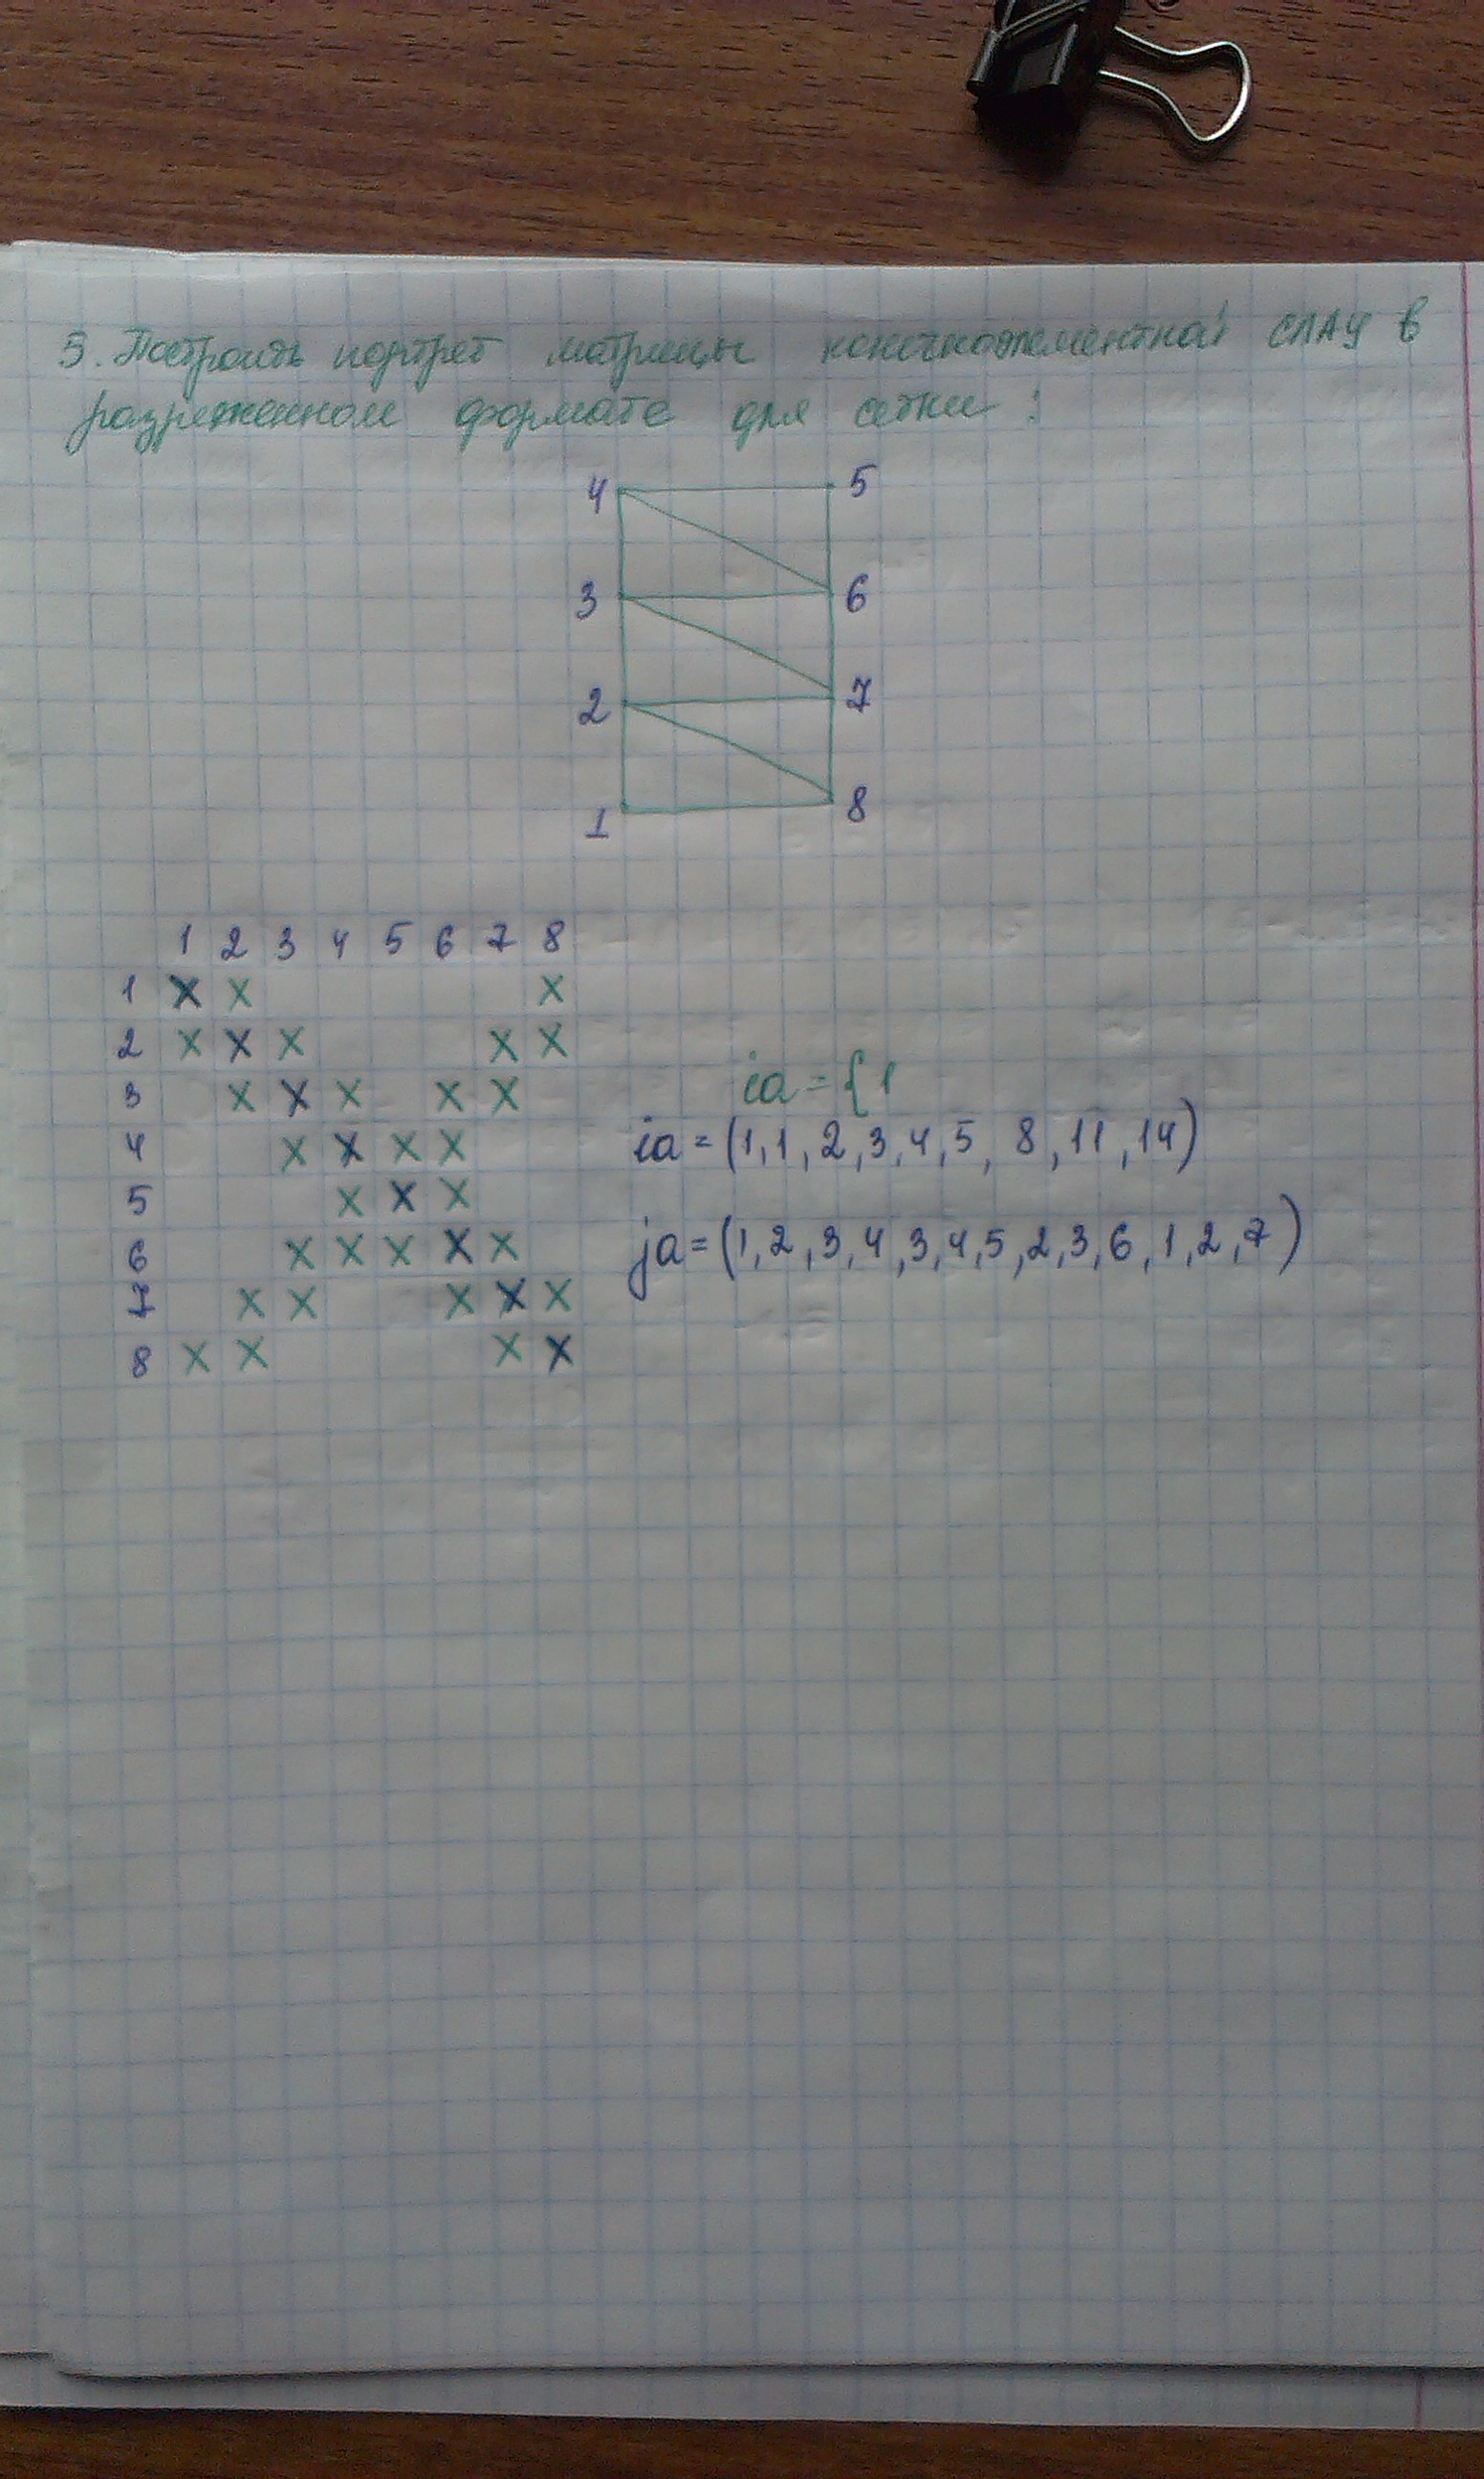 3. Построить портрет матрицы конечноэлементной СЛАУ в
разряженном формате для сетки :
4 5
3 6
2 7
1 8
1 2 3 4 5 6 7 8
1 X X X
2 X X X X X
3 X X X X X
4 X X X X
5 X X X
6 X X X X X
7 X X X X X
8 X X X X
ia = {1
ia = (1,1,2,3,4,5, 8,11,14)
ja = (1,2,3,4,3,4,5,2,3,6,1,2,7)